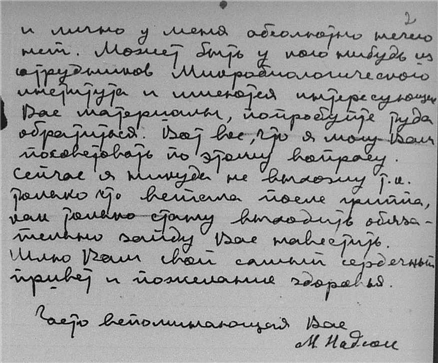 2
и лично у меня абсолютно нечего
нет. Может быть у кого нибудь из
сотрудников Микробиологического
института и имеются интересующие
Вас материалы, попробуйте туда
обратиться. Вот все, что я могу Вам
посоветовать по этому вопросу.
Сейчас я никуда не выхожу т.к.
только что встала после гриппа,
как только стану выходить обяза-
тельно зайду Вас навестить.
Шлю Вам свой самый сердечный
привет и пожелание здоровья.
Часто вспоминающая Вас
М Надсон